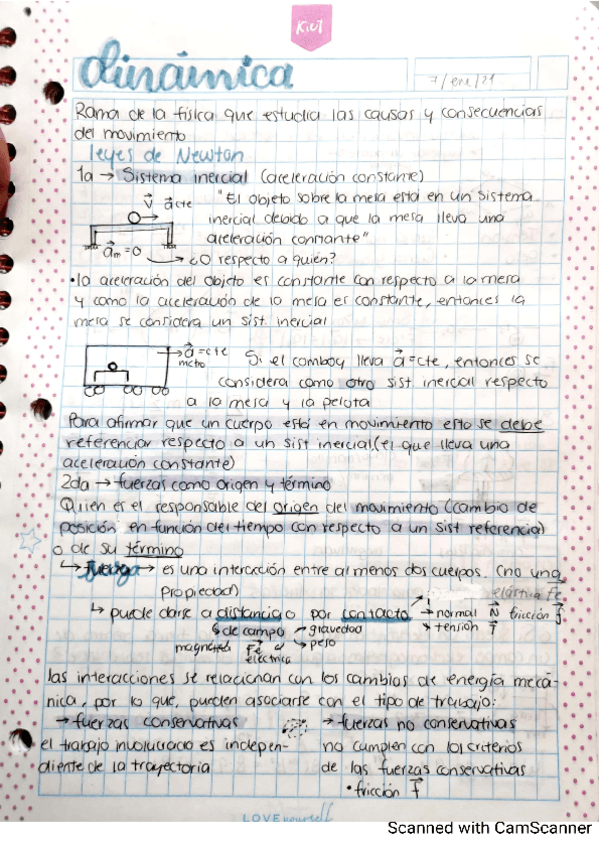 Kiut
dinámica
7/ene/21
Rama de la física que estudia las causas y consecuencias
del movimiento
leyes de Newton
1a → Sistema inercial (aceleración constante)
V⃗ a⃗cte
"El objeto sobre la mesa está en un sistema
inercial debido a que la mesa lleva una
aceleración constante"
a⃗m = 0
¿0 respecto a quién?
•la aceleración del objeto es constante con respecto a la mesa
y como la aceleración de la mesa es constante, entonces la
mesa se considera un sist. inercial
→a⃗=cte
metro
Si el comboy lleva a⃗=cte, entonces se
considera como otro sist inercial respecto
a la mesa y la pelota
Para afirmar que un cuerpo está en movimiento esto se debe
referenciar respecto a un sist inercial (el que lleva una
aceleración constante)
2da → fuerzas como origen y término
Quien es el responsable del origen del movimiento (cambio de
posición en función del tiempo con respecto a un sist referencial)
o de su término
↳ fuerza → es una interacción entre al menos dos cuerpos. (no una
propiedad)
elástica Fe
↳ puede darse a distancia o por contacto
→ normal N⃗ fricción f⃗
tensión T⃗
de campo
gravedad
peso
magnética
F⃗e
eléctrica
las interacciones se relacionan con los cambios de energía mecá-
nica, por lo que, pueden asociarse con el tipo de trabajo:
→ fuerzas conservativas
el trabajo involucrado es indepen-
diente de la trayectoria
→ fuerzas no conservativas
no cumplen con los criterios
de las fuerzas conservativas
•fricción f⃗
LOVE yourself
Scanned with CamScanner